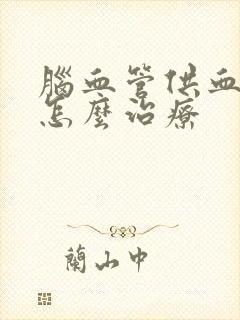 腦血管供血
怎麼治療
蘭山中